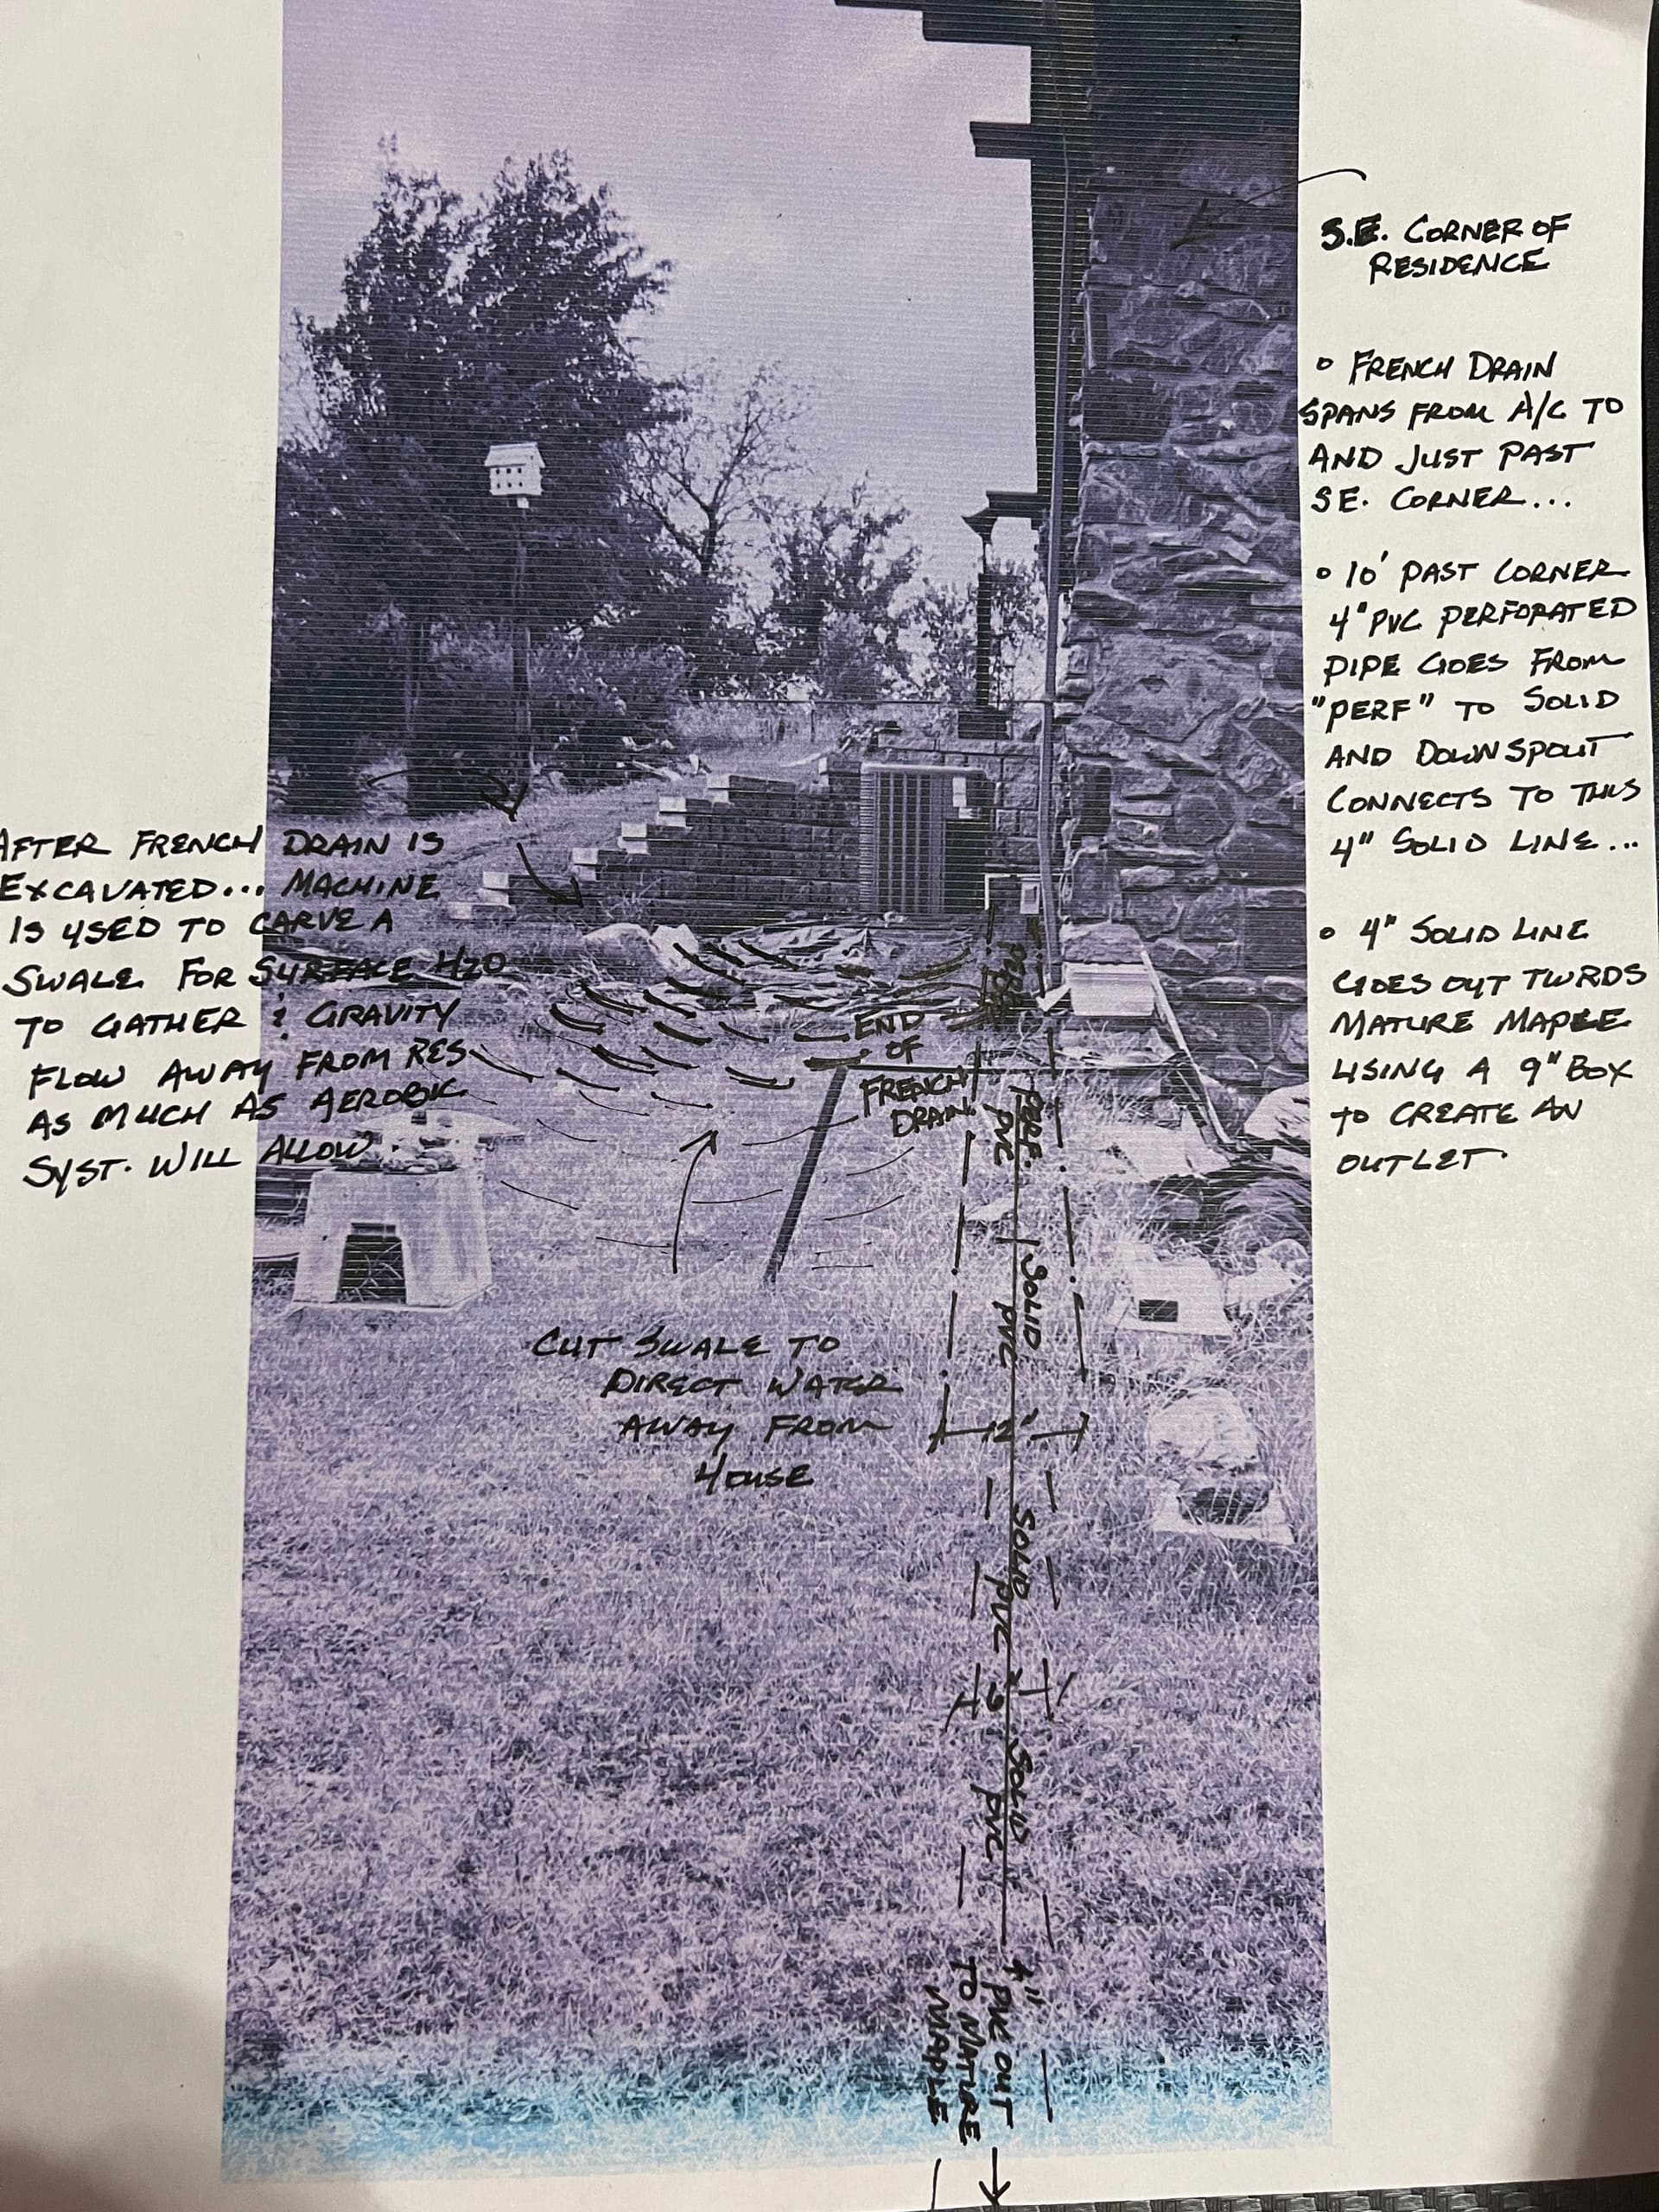 S.E. CORNER OF
RESIDENCE
o FRENCH DRAIN
SPANS FROM A/C TO
AND JUST PAST
SE. CORNER...
o 10' PAST CORNER
4" PVC PERFORATED
PIPE GOES FROM
"PERF" TO SOLID
AND DOWNSPOUT
CONNECTS TO THIS
4" SOLID LINE...
o 4" SOLID LINE
GOES OUT TWRDS
MATURE MAPLE
USING A 9" BOX
TO CREATE AN
OUTLET.
AFTER FRENCH DRAIN IS
EXCAVATED... MACHINE
IS USED TO CARVE A
SWALE FOR SURFACE H2O
TO GATHER & GRAVITY
FLOW AWAY FROM RES
AS MUCH AS AEROBIC
SYST. WILL ALLOW.
END
OF
FRENCH
DRAIN
PERF.
PVC
SOLID
PVC
CUT SWALE TO
DIRECT WATER
AWAY FROM
HOUSE
12"
SOLID
PVC
SOLID
PVC
4"
PVC OUT
TO MATURE
MAPLE